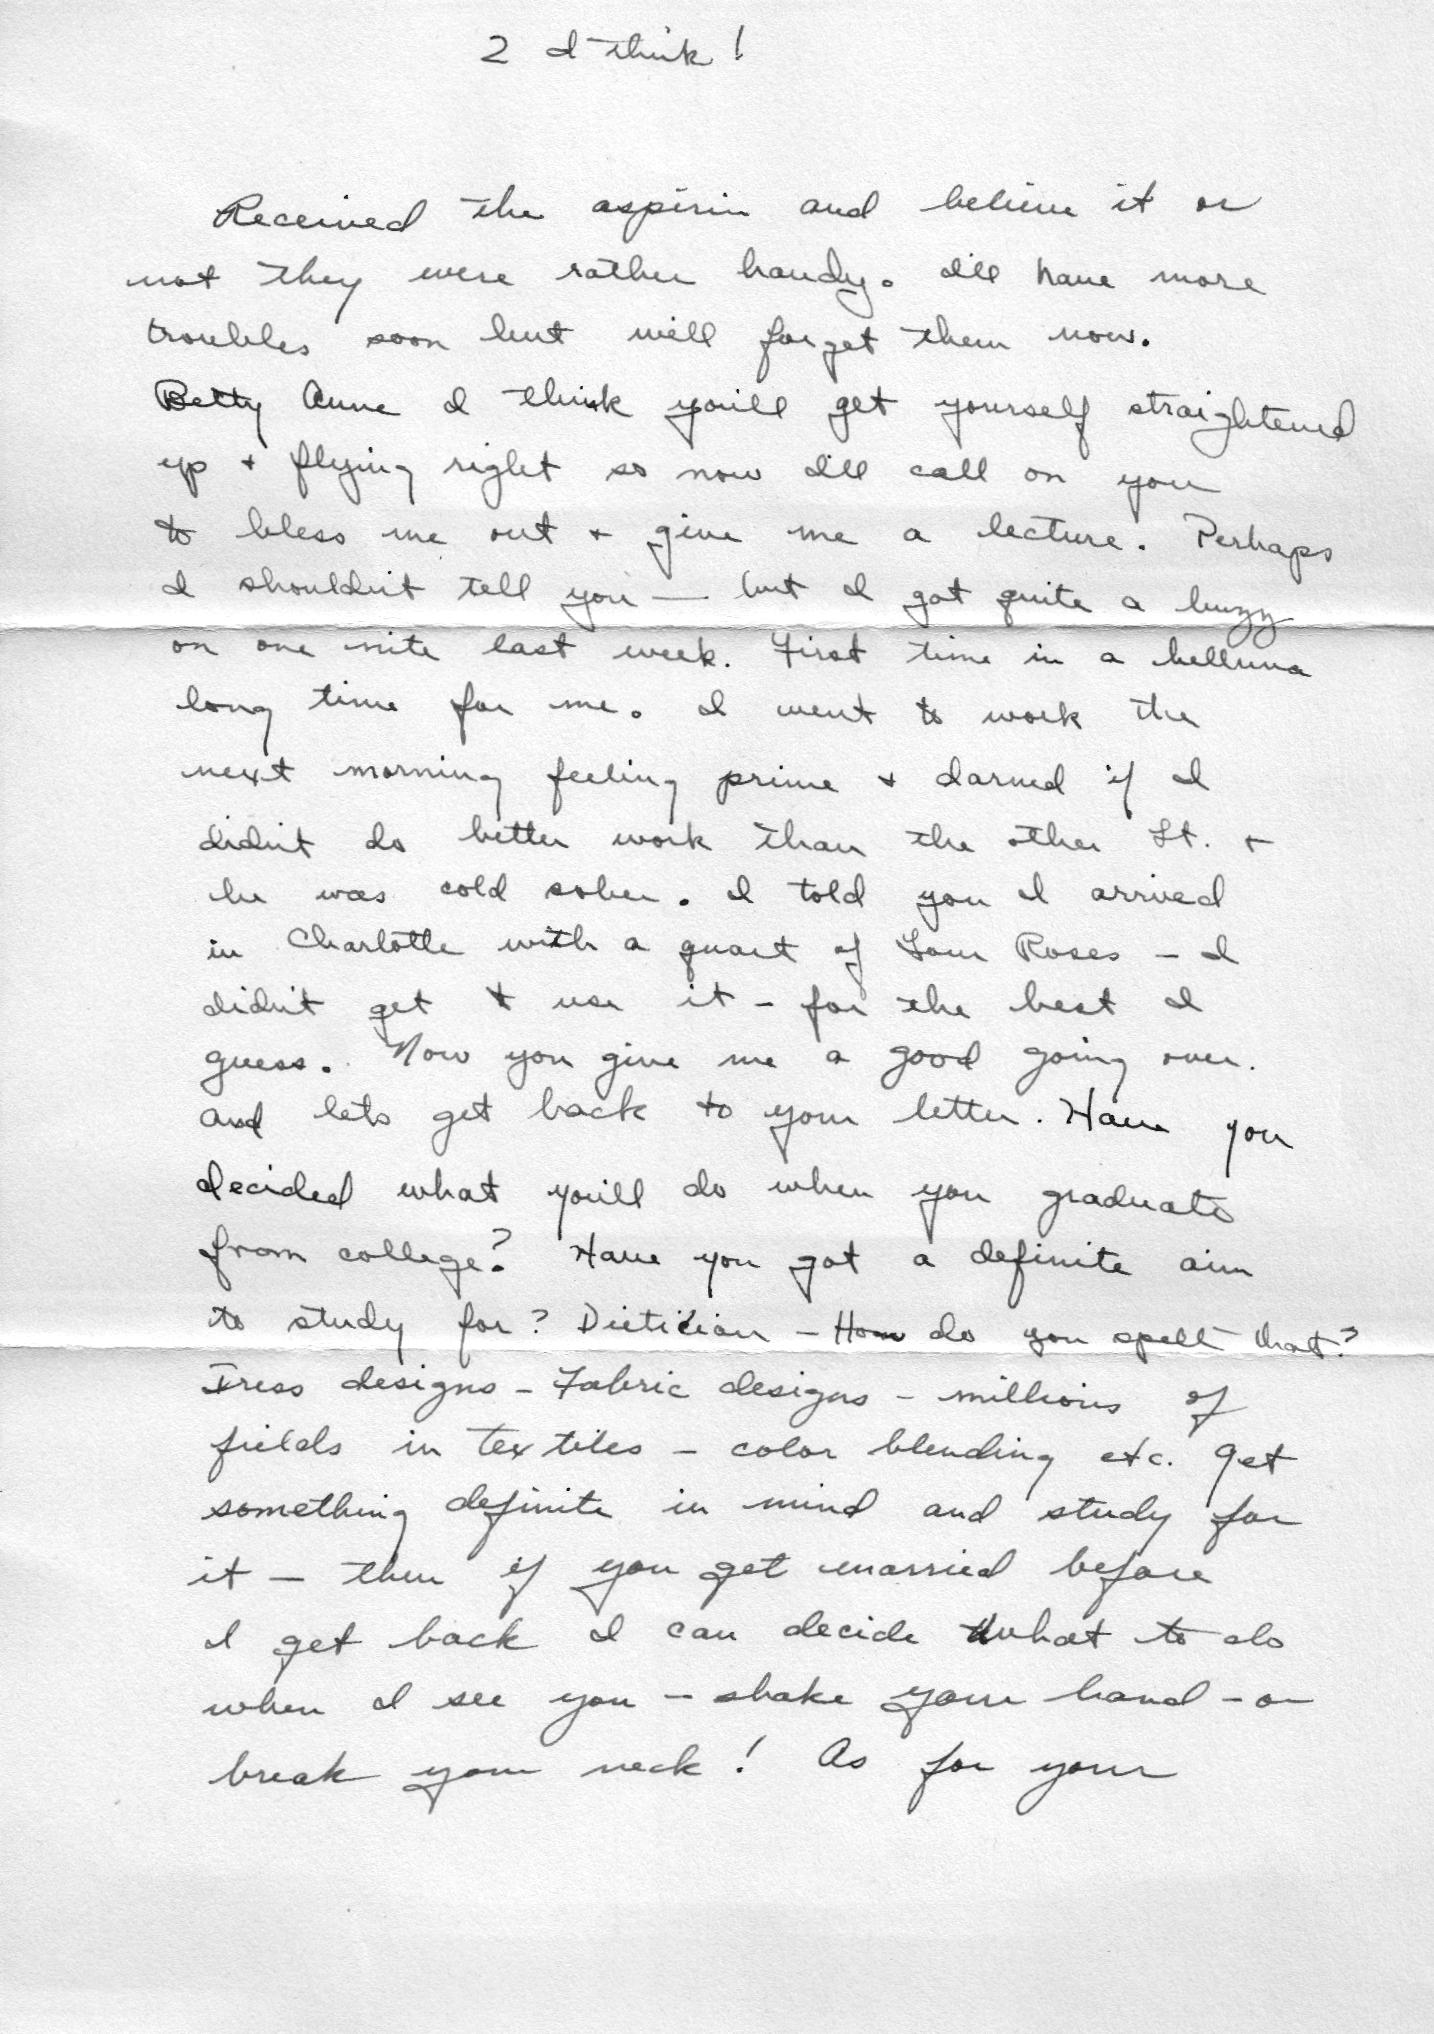 2 I think!
Received the aspirin and believe it or
not they were rather handy. I'll have more
troubles soon but will forget them now.
Betty Anne I think you'll get yourself straightened
up + flying right so now I'll call on you
to bless me out + give me a lecture. Perhaps
I shouldn't tell you — but I got quite a buzzy
on one nite last week. First time in a helluva
long time for me. I went to work the
next morning feeling prime + darned if I
didn't do better work than the other Lt. +
he was cold sober. I told you I arrived
in Charlotte with a quart of Four Roses - I
didn't get to use it - for the best I
guess. Now you give me a good going over.
And lets get back to your letter. Have you
decided what you'll do when you graduate
from college? Have you got a definite aim
to study for? Dietician - How do you spell that?
Dress designs - Fabric designs - millions of
fields in textiles - color blending etc. Get
something definite in mind and study for
it - then if you get married before
I get back I can decide what to do
when I see you - shake your hand - or
break your neck! As for your